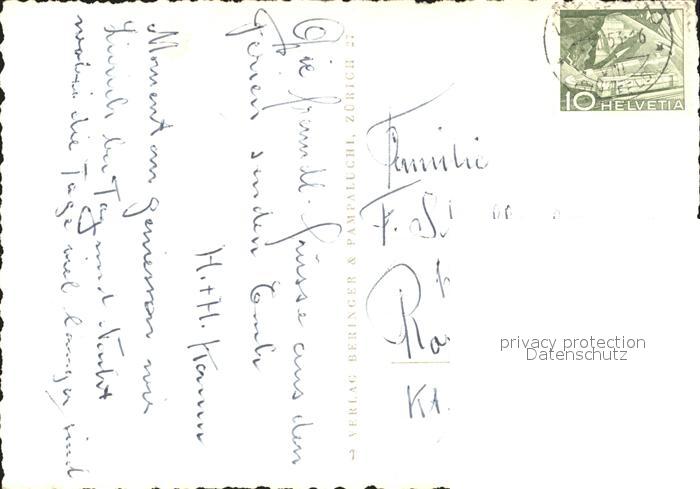 Die freundl. Grüsse aus den
Ferien senden Euch
H. + H. Kamm
Momentan geniessen wir
Zürich bei Tag und Nacht
wobei die Tage viel länger sind
VERLAG BERINGER & PAMPALUCHI, ZÜRICH
10 HELVETIA
Familie
F.
Kt.
privacy protection
Datenschutz